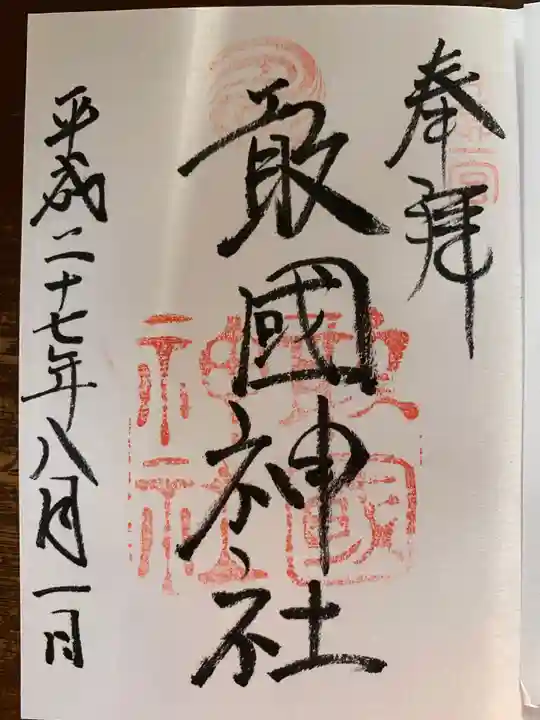 奉拜
敢國神社
平成二十七年八月一日
敢國神社